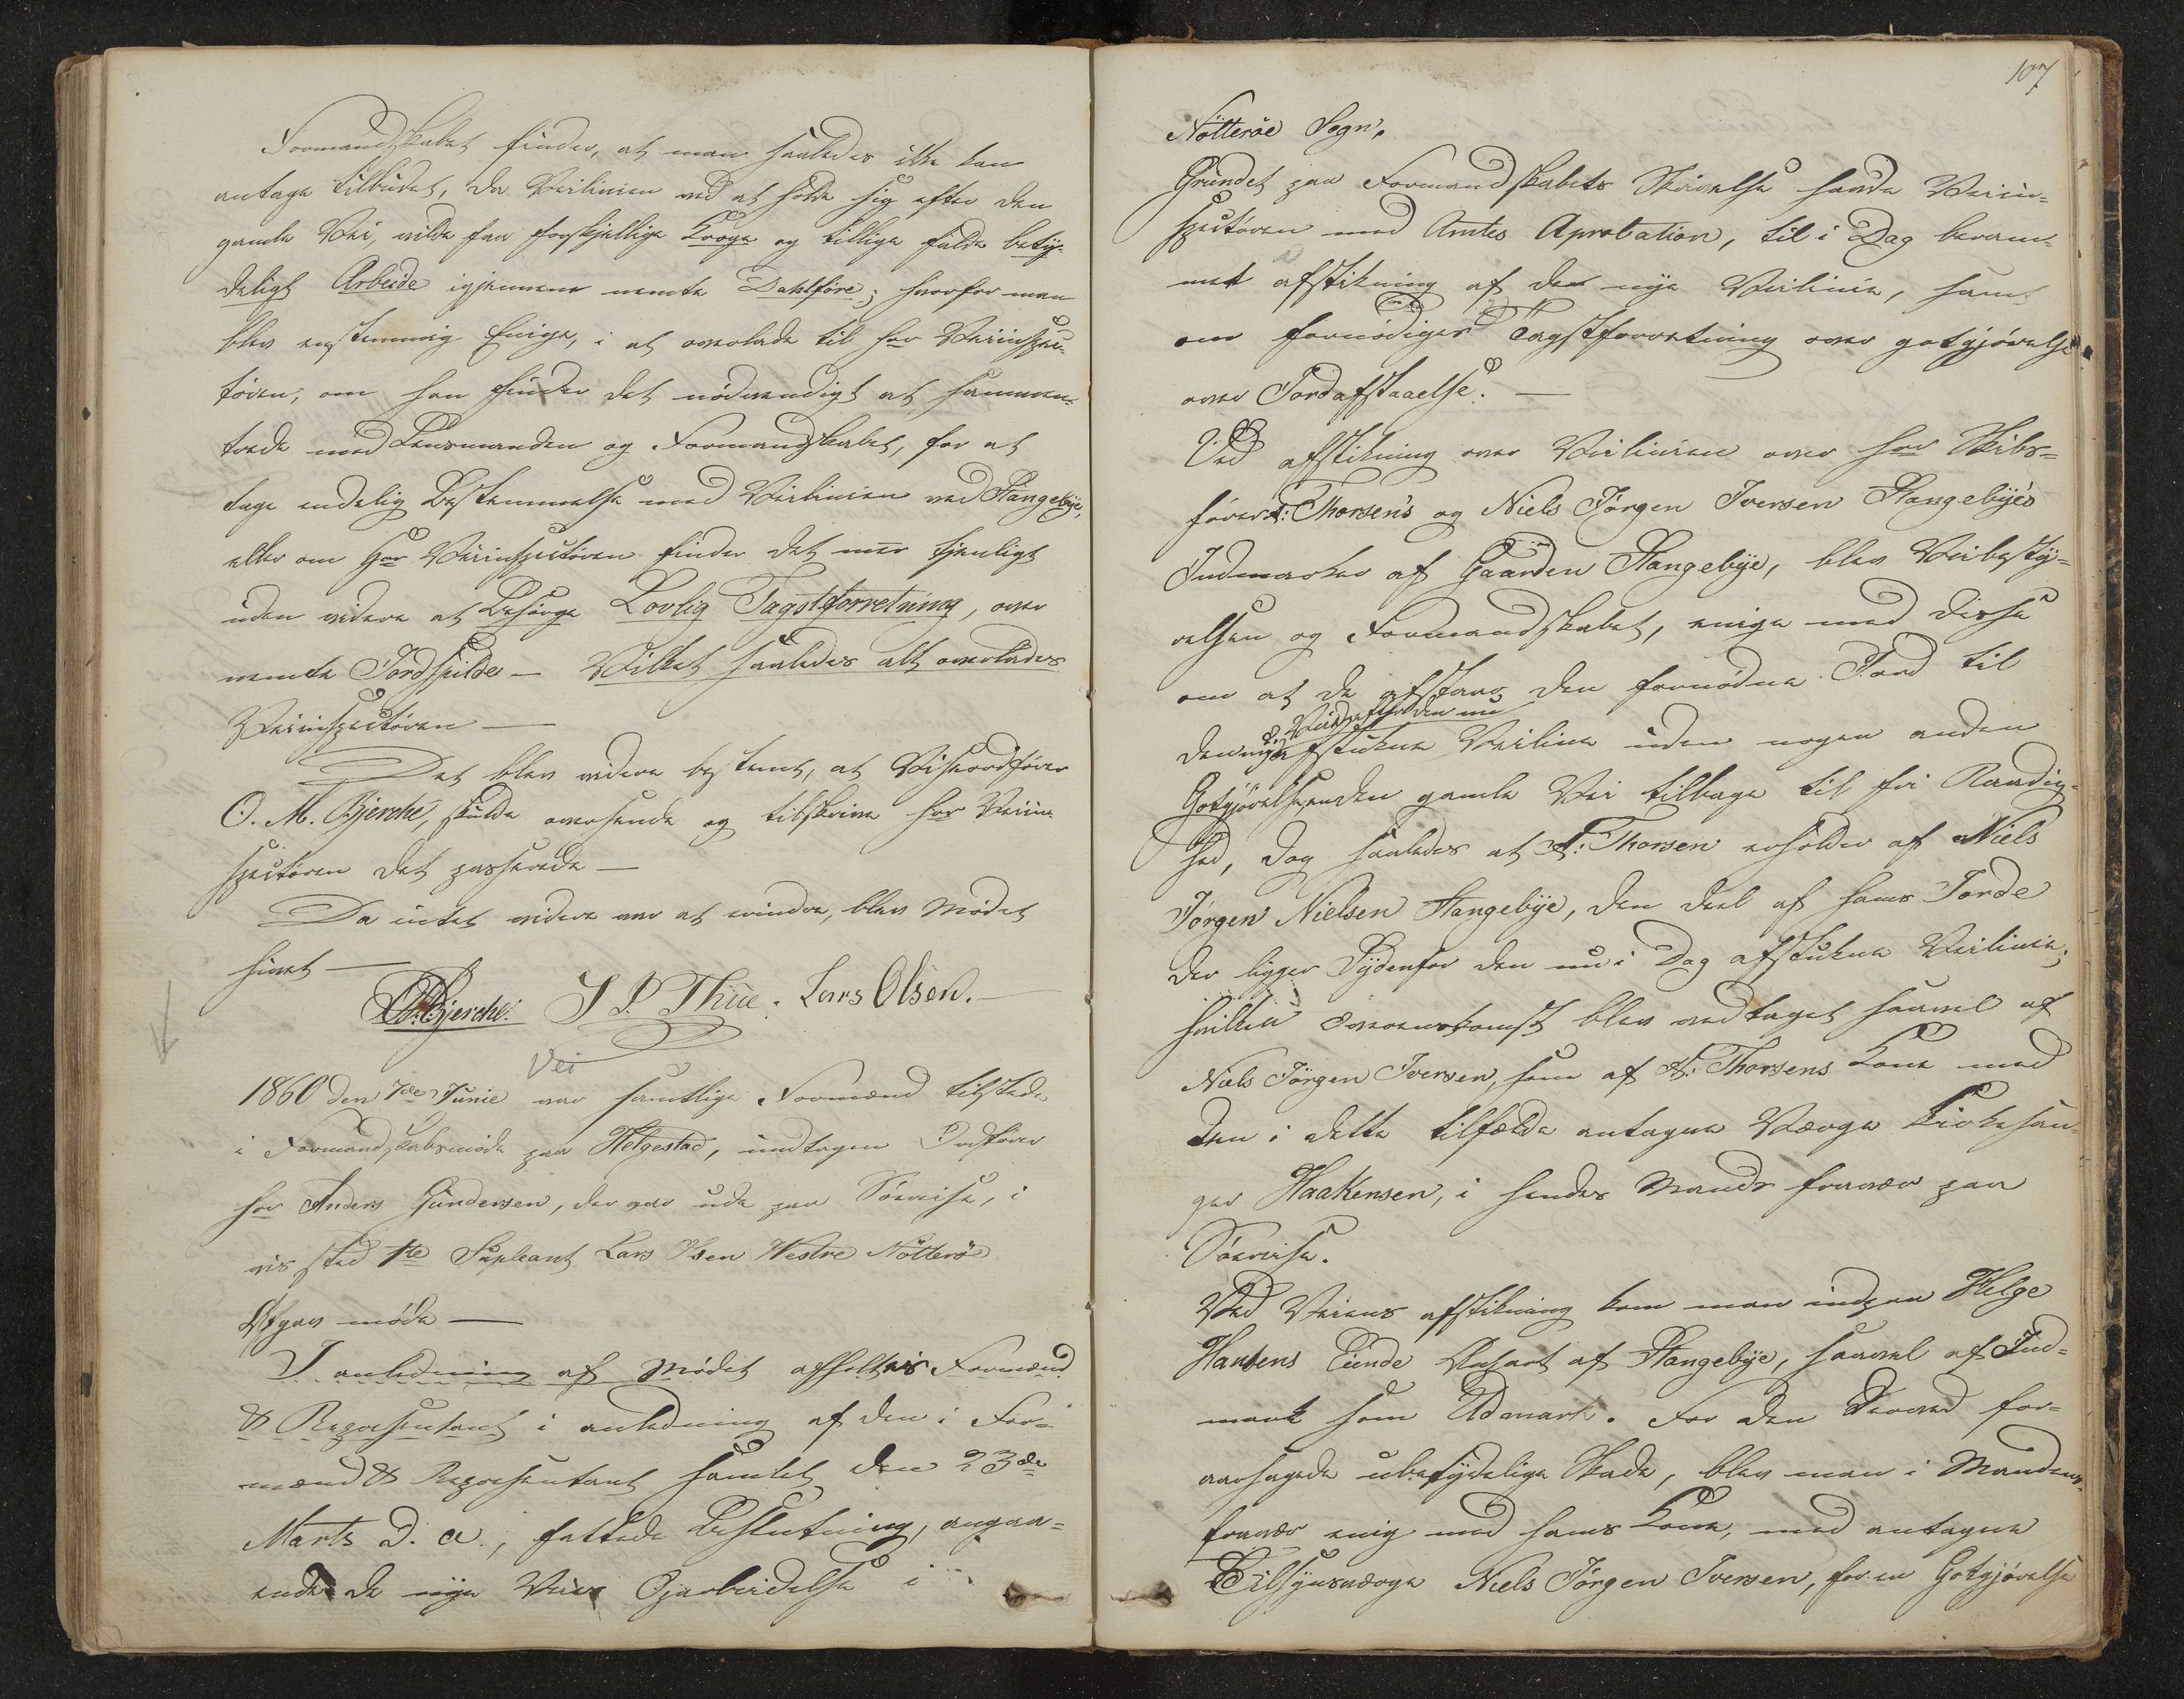 Formandskabet finder, at man saaledes ikke kan
antage tilbudet, da Veilinien ved at holde sig efter den
gamle Vei, vilde faa forskjellige Kroge og tillige falde betÿ-
deligt Arbeide igjennem nemte Dahlføre; hvorfor man
blev enstemmig Enige, i at overlade til hrr Veiinspec-
tøren, om han finder det nødvendigt at sammen-
træde med Lensmanden og Formandskabet, for at
tage endelig Bestemmelse med Veilinien ved Stangebÿe,
eller om Hrr Veiinspectøren finder det mer tjenligt
uden videre at Besørge Lovlig Tagstforretning, over
nemte Jordspilde — Vilket saaledes alt overlades
Veiinspectøren —
Det blev videre bestemt, at Viseordfører
O. M. Bjerche, skulde oversende og tilskrive hrr Veiin-
spectøren det passerede —
Da intet videre var at erindre, blev Mødet
hævet —
O.M. Bjerche. J P. Thue. Lars Olsen. —
Vei
1860 den 7de Junie var samtlige Formænd tilstede
i Formandskabsmøde paa Helgestad, undtagen Ordfører
hrr Anders Gundersen, der var ude paa Søereise, i
vis sted 1te Supleant Lars Olsen Westre Nötterö
Afgav møde —
I anledning af Mødet afholtes Formænd
& Repræsentant i anledning af den i For-
mænd & Repræsentant samlet den 23de
Marts D. a., fattede Beslutning, angaa-
ende de nye Veies Oparbeidelse i
107
Nötteröe Sogn.
Grundet paa Formandskabets Skrivelse havde Veiin-
spectøren med Amtes Aprobation, til i Dag beram-
met afstikning af den nye Veilinie, samt
om fornødiges Tagstforretning over gotgjørelse
over Jordafstaaelse. —
Ved afstikning over Veilinien over hrr Skibs-
fører A: Thorsen's og Niels Jörgen Iversen Stangebÿe's
Indmarker af Gaarden Stangebÿe, blev Veibestÿ-
relsen og Formandskabet, enige med disse
om at de afstaar den fornødne Jord til
Veien efter den nu
den nye afstukne Veiline uden nogen anden
Gotgjørelse end den gamle Vei tilbage til fri Raadig-
hed, dog saaledes at A: Thorsen erholder af Niels
Jörgen Nielsen Stangebÿe, den deel af hans Jorde
der ligger Sÿdenfor den nu i Dag afstukne Veilinie;
hvilken Overenskomst blev vedtaget saavel af
Niels Jörgen Iversen, som af A: Thorsens Kone med
den i dette tilfælde antagne Værge Kirkesan-
ger Haakensen, i hendes Mands fravær paa
Søereise.
Ved Veiens afstikning kom man indpaa Helge
Hansens Eiende Anpart af Stangebÿe, saavel af Ind-
mark som Udmark. For den derved for-
aarsagede ubetÿdelige Skade, blev man i Mandens
fravær enig med hans Kone, med antagne
Tilsÿnsværge Niels Jörgen Iversen, for en Gotgjørelse